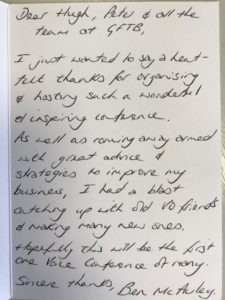 Dear Hugh, Peter & all the
team at GFTB,
I just wanted to say a heart-
felt thanks for organising
& hosting such a wonderful
& inspiring conference.
As well as coming away armed
with great advice &
strategies to improve my
business, I had a blast
catching up with old VO friends
& making many new ones.
Hopefully this will be the first
One Voice Conference of many.
Sincere thanks, Ben McAuley